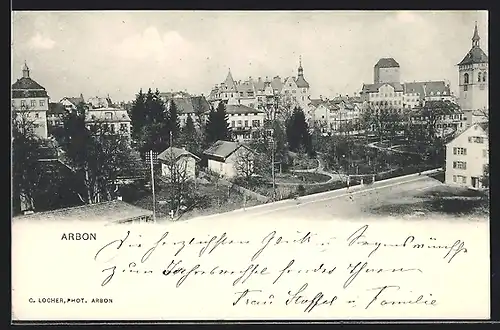 ARBON
Die herzlichsten Glück u. Segenswünsche
zum Jahreswechsel sendet Ihnen
Frau Stoffel u Familie
C. LOCHER, PHOT. ARBON